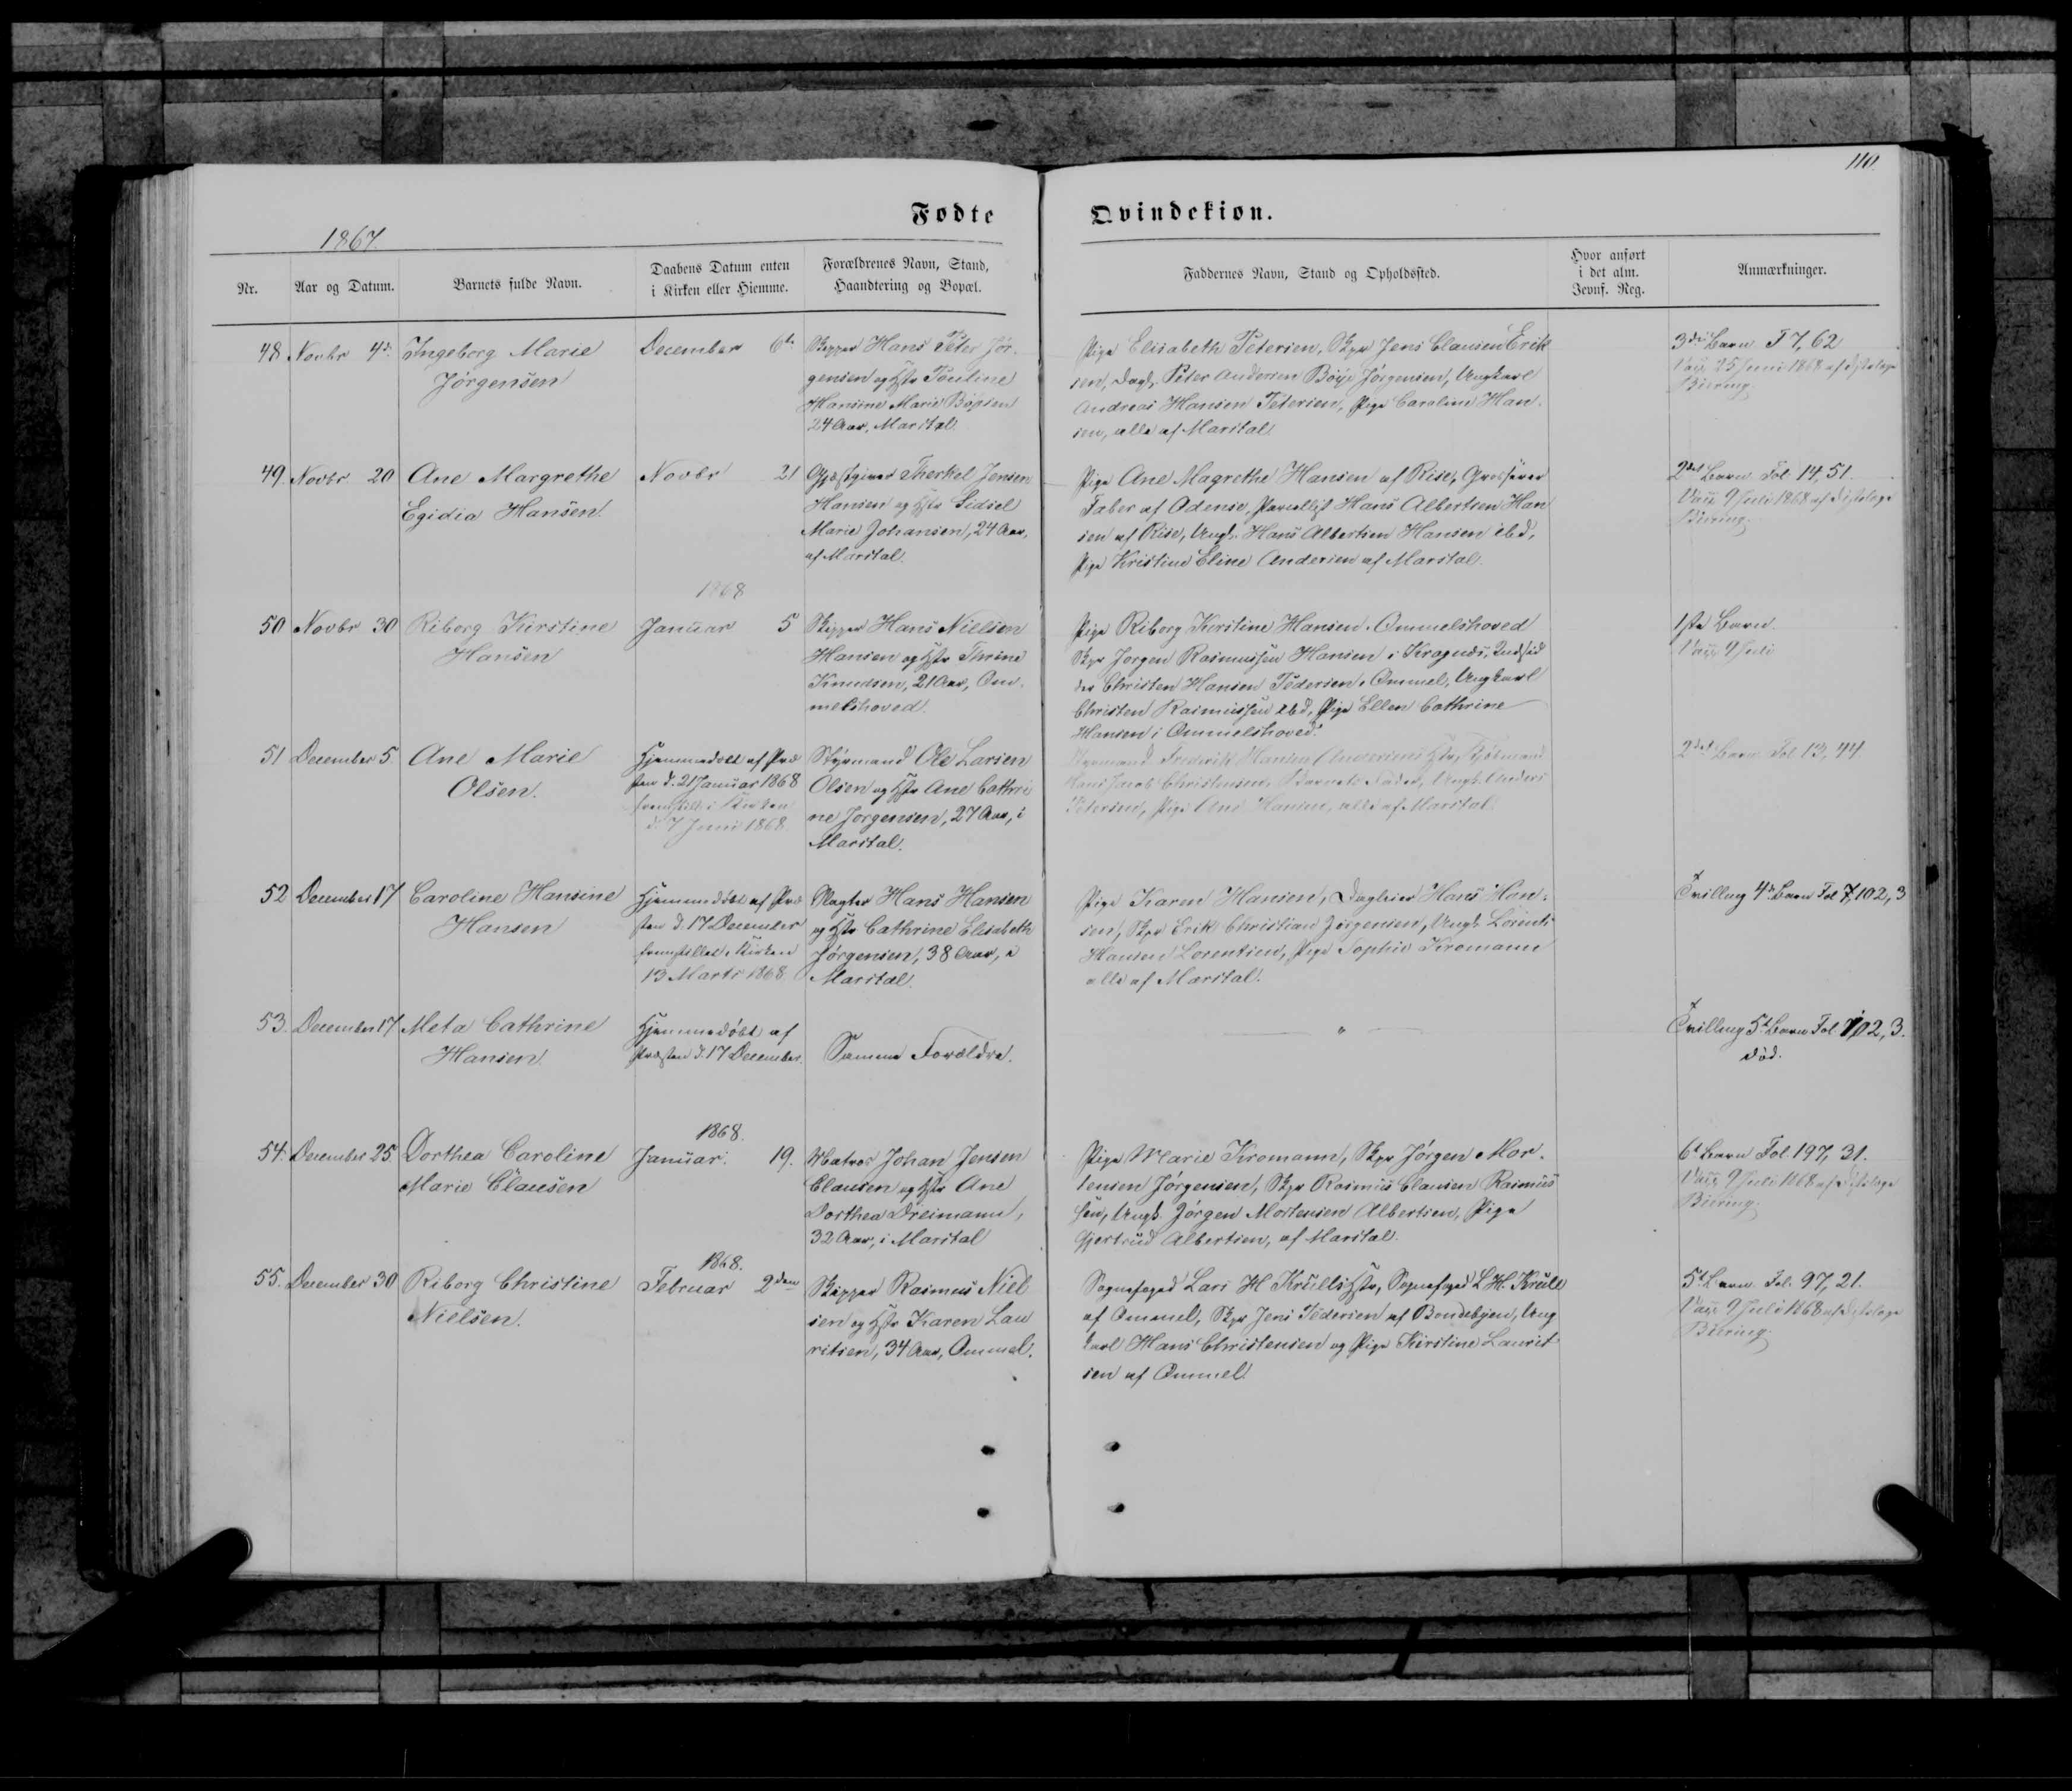 110.
Fødte Qvindekiøn.
1867.
Nr.
Aar og Datum.
Barnets fulde Navn.
Daabens Datum enten
i Kirken eller Hiemme.
Forældrenes Navn, Stand,
Haandtering og Bopæl.
Faddernes Navn, Stand og Opholdssted.
Hvor anført
i det alm.
Jevnf. Reg.
Anmærkninger.
48 Novbr 4de
Ingeborg Marie
Jørgensen
December 6te
Skipper Hans Peter Jør-
gensen og Hstr Pouline
Hansine Marie
24 Aar, Marstal.
Pige Elisabeth Petersen, Skpr Jens Clausen Erik
sen, Dagl. Peter Andersen Bøye Jørgensen, Ungkarl
Andreas Hansen Petersen, Pige Caroline Han-
sen, alle af Marstal.
3die Barn F 7, 62
Vacc 25 Juni 1868 af Distrlæge
Biering.
49. Novbr 20
Ane Margrethe
Egidia Hansen.
Novbr 21
Gjæstgiver Therkel Jensen
Hansen og Hstr Sidsel
Marie Johansen, 24 Aar,
af Marstal.
Pige Ane Magrethe Hansen af Rise, Grosserer
Faber af Odense, Parcellist Hans Albertsen Han
sen af Rise, Ungk. Hans Albertsen Hansen ibd,
Pige Kristine Eline Andersen af Marstal.
2det Barn Fol 14, 51.
Vacc 9 Juli 1868 af Distrlæge
Biering.
50 Novbr 30
Riborg Kirstine
Hansen
1868
Januar 5
Skipper Hans Nielsen
Hansen og Hstr Thrine
Knudsen, 21 Aar, Om-
melshoved.
Pige Riborg Kirstine Hansen i Ommelshoved
Skpr Jørgen Rasmussen Hansen i Kragnæs, Indsid
der Christen Hansen Pedersen i Ommel, Ungkarl
Christen Rasmussen ibd, Pige Ellen Cathrine
Hansen i Ommelshoved.
1ste Barn
Vacc 9 Juli
51 December 5.
Ane Marie
Olsen.
Hjemmedøbt af Præ
sten d. 21 Januar 1868
fremstillet i Kirken
d. 7 Juni 1868.
Styrmand Ole Larsen
Olsen og Hstr Ane Cathri
ne Jørgensen, 27 Aar, i
Marstal.
Styrmand Frederik Hansen Hstr,
Hans Jacob Christensen, Barnets Fader, Ungk. Anders
Petersen, Pige Ane Hansen, alle af Marstal.
2det Barn Fol 13, 44
52 December 17
Caroline Hansine
Hansen
Hjemmedøbt af Præ
sten d. 17 December
fremstillet i Kirken
13 Marts 1868.
Slagter Hans Hansen
og Hstr Cathrine Elisabeth
Jørgensen, 38 Aar, i
Marstal.
Pige Karen Hansen, Dagleier Hans Han-
sen, Skpr Erik Christian Jørgensen, Ungk. Lorents
Hansen Lorentsen, Pige Sophie Kromann
alle af Marstal.
Tvilling 4de Barn Fol 7, 102, 3
53. December 17
Meta Cathrine
Hansen.
Hjemmedøbt af
Præsten d. 17 December.
Samme Forældre.
— " —
Tvilling 5te Barn Fol 102, 3.
død.
54. December 25
Dorthea Caroline
Marie Clausen
1868.
Januar. 19.
Matros Johan Jensen
Clausen og Hstr Ane
Dorthea Dreimann,
32 Aar, i Marstal
Pige Marie Kromann, Skpr Jørgen Mor-
tensen Jørgensen, Skpr Rasmus Clausen Rasmus
sen, Ungk. Jørgen Mortensen Albertsen, Pige
Gjertrud Albertsen, af Marstal.
6te Barn Fol. 197, 31.
Vacc 9 Juli 1868 af Distrlæge
Biering.
55. December 30
Riborg Christine
Nielsen.
1868.
Februar 2den
Skipper Rasmus Niel
sen og Hstr Karen Lau
ritsen, 34 Aar, Ommel.
Sognefoged Lars H Krulls Hstr, Sognefoged L. H. Krull
af Ommel, Skpr Jens Pedersen af Bondebyen, Ung
karl Hans Christensen og Pige Kirstine Laurit
sen af Ommel.
5te Barn Fol. 97, 21.
Vacc 9 Juli 1868 af Distrlæge
Biering.